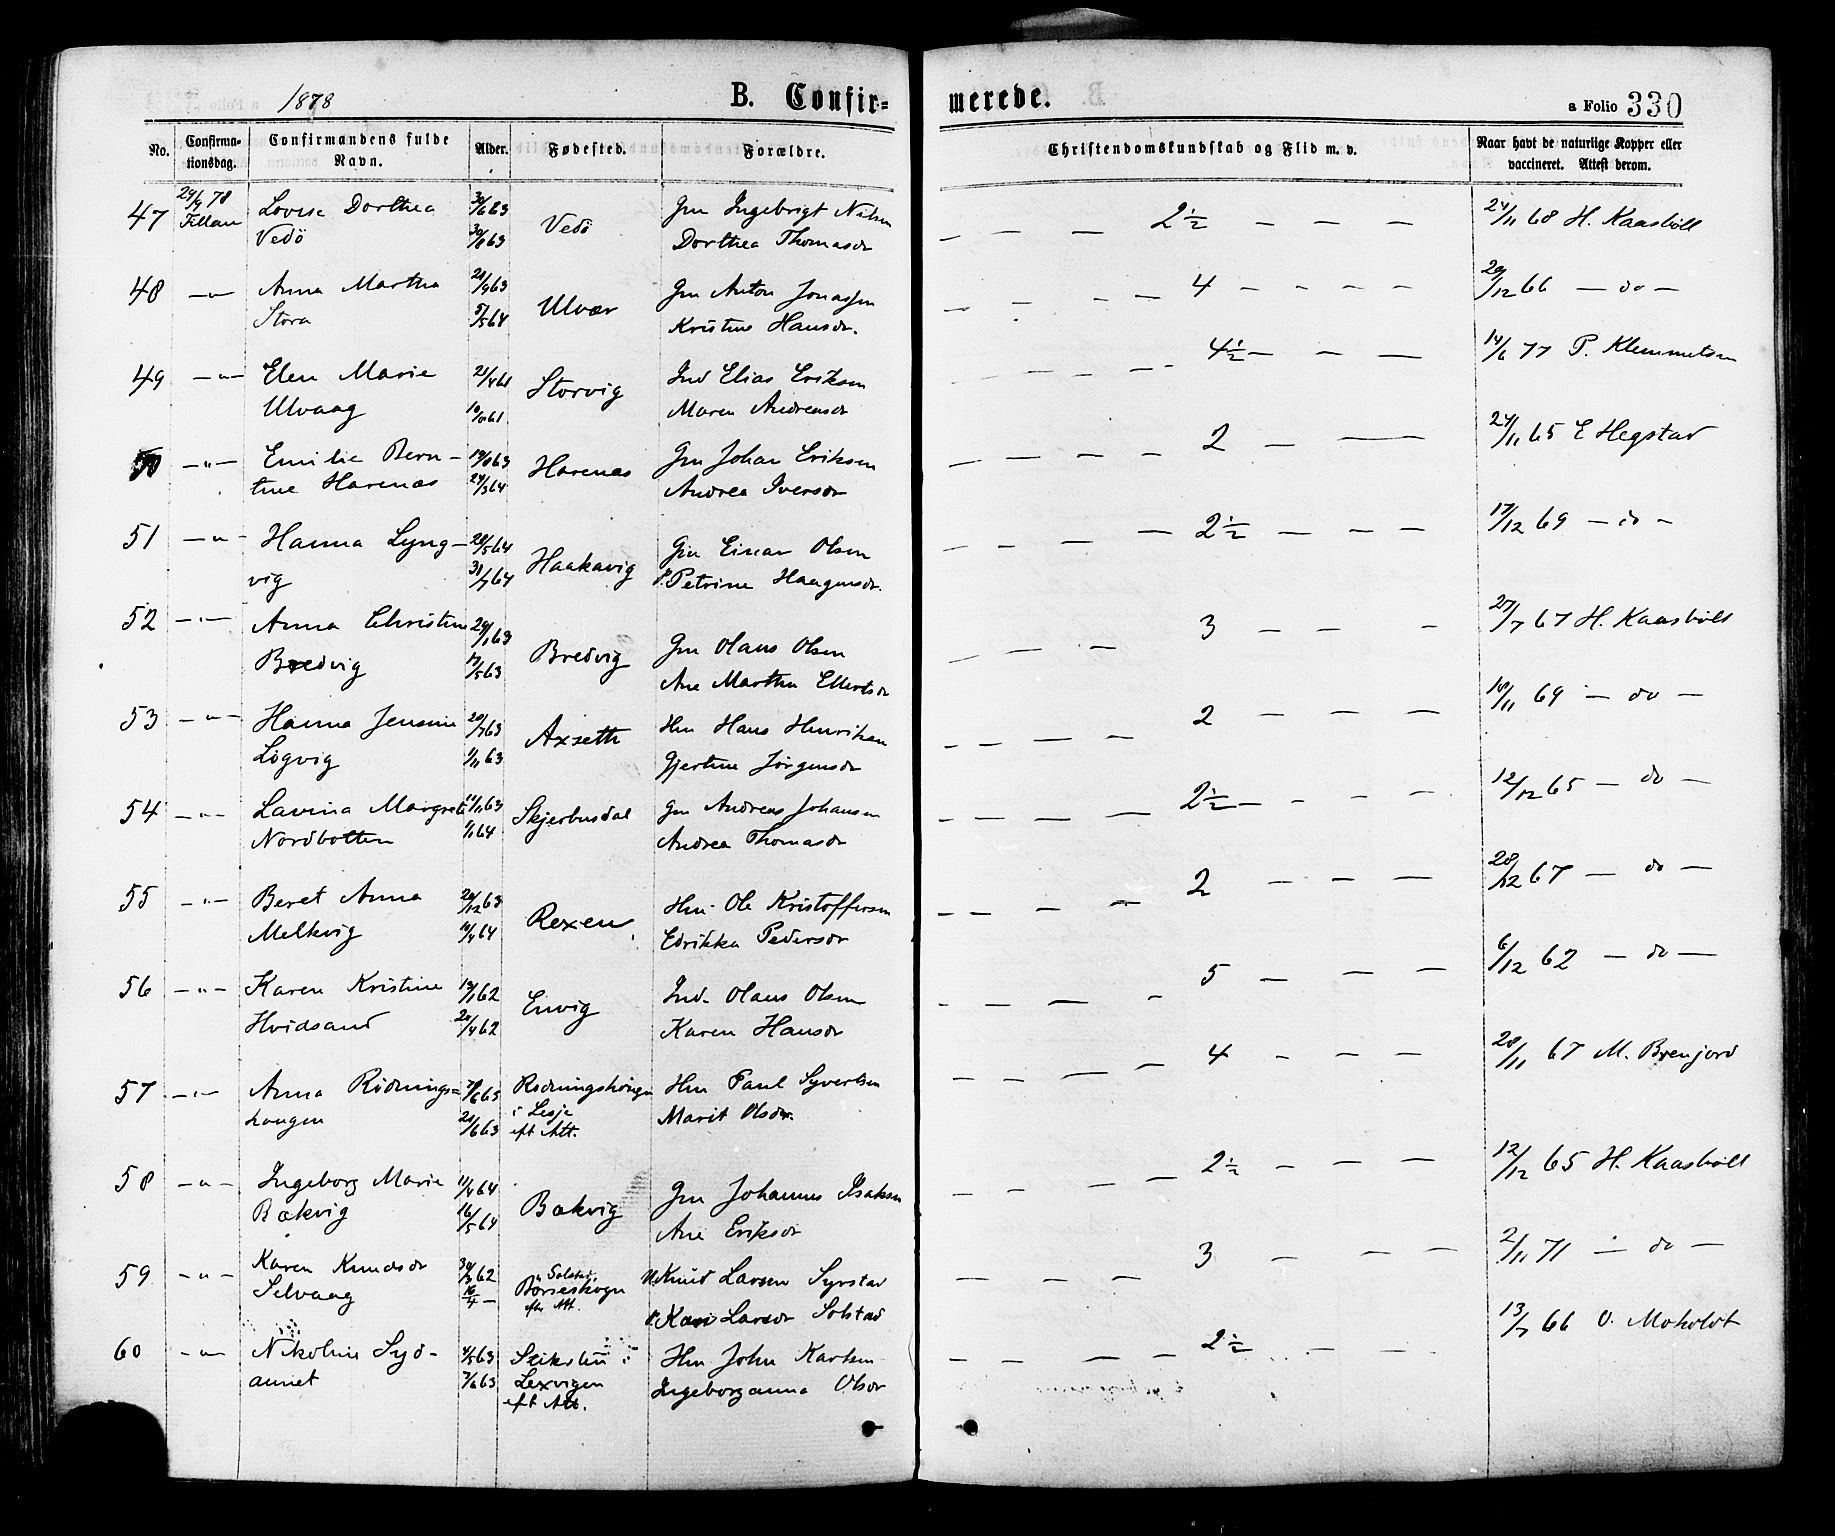 1878 B. Confir=
merede. a Folio 330
No. Confirma-tionsdag. Confirmandens fulde Navn. Alder. Fødested. Forældre. Christendomskundskab og Flid m. v. Naar havt de naturlige Kopper eller vaccineret. Attest derom.
47 29/9 78 Lovise Dorthea Vedö Gm Ingebrigt Nilsen 2½ — — — 24/11 68 H. Kaasböll
Fillan 30/8 63 Vedö Dorthea Thomasdr
48 — " — Anna Martha 21/9 63 Ulvær Gm Anton Jonassen 4 — — — — 29/12 66 — do —
Stora 5/5 64 Kristine Hansdr.
49 — " — Elen Marie 21/4 61 Storvig Ind Elias Eriksen 4½ — — — 14/6 77 P. Klemmetsen
Ulvaag Maren Andreasdr
50 — " — Emilie Bern- 19/8 63 Havenas Gm Johan Eriksen 2 — — 24/11 65 E Hegstad
tine Havenas 24/3 64 Andrea Iversdr
51 — " — Hanna Lyng- 28/5 64 Haakavig Gm Einar Olsen 2½ — — — 17/12 69 — do —
vig 31/7 64 Petrine Haagensdr.
52 — " — Anna Christine 29/1 63 Bredvig Gm Olaus Olsen 3 — — — 27/7 67 H. Kaasböll
Bredvig 17/5 63 Ane Martha Ellertsdr
53 — " — Hanna Jensine 20/7 63 Axseth Hm Hans Henriksen 2 — — — 18/11 69 — do —
Lögvig 1/11 63 Gjertine Jörgensdr
54 — " — Lavina Margrete 11/11 63 Skjerbusdal Gm Andreas Johansen 2½ — — — 12/12 65 — do —
Nordbotten 1/1 64 Andrea Thomasdr
55 — " — Beret Anna 20/12 63 Rexen Hm Ole Kristoffersen 2 — — — 28/12 67 — do —
Melkvig 10/4 64 Edrikka Pedersdr
56 — " — Karen Kristine 19/1 62 Envig Ind. Olaus Olsen 5 — — — 6/12 62 — do —
Hvidsand 20/4 62 Karen Hansdr
57 — " — Anna Rödnings= 7/6 63 Rödningshöugen Hm Paul Syvertsen 4 — — — 28/11 67 M. Brenjord
hougen 21/6 63 i Lesje eft Att. Marit Olsdr.
58 — " — Ingeborg Marie 11/4 64 Bækvig Gm Johannes Isaksen 2½ — — — 12/12 65 H. Kaasböll
Bækvig 16/5 64 Ane Eriksdr
59 — " — Karen Knudsdr 30/3 62 Solstad, Börseskogn efter Att. Knud Larsen Syrstad 3 — — — 2/11 71 — do —
Selvaag 16/4 — Kari Larsdr Solstad
60 — " — Nikoline Syd- 4/5 63 Hm John Karlsen 2½ — — — 13/7 66 O. Moholdt
annet 7/6 63 Lexvigen eft Att. Ingeborganna Olsdr